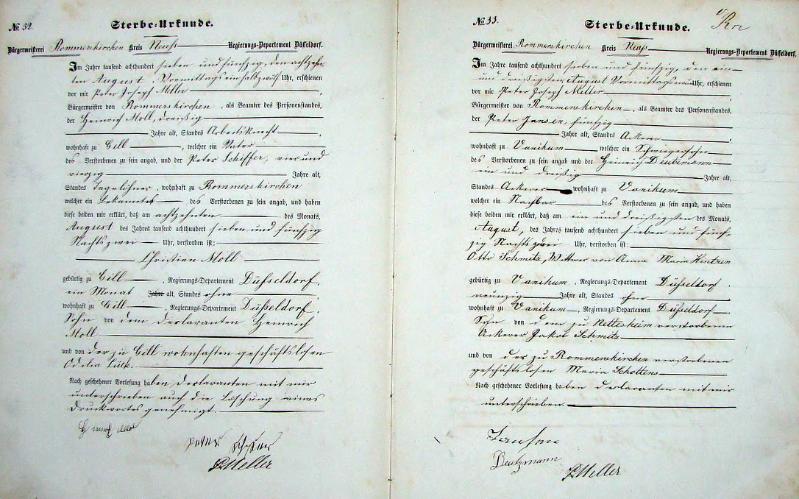 № 32. Sterbe-Urkunde.
Bürgermeisterei Rommerskirchen Kreis Neuß Regierungs-Departement Düsseldorf.
Im Jahre tausend achthundert sieben und fünfzig, den achtzehn-
ten August Vormittags ein halb zwölf Uhr, erschienen
vor mir Peter Joseph Meller
Bürgermeister von Rommerskirchen, als Beamter des Personenstandes,
der Heinrich Moll, dreißig
Jahre alt, Standes Arbeitsknecht
wohnhaft zu Gill, welcher ein Vater
des Verstorbenen zu sein angab, und der Peter Schiffer, vier und
vierzig Jahre alt,
Standes Tagelöhner, wohnhaft zu Rommerskirchen
welcher ein Bekannter des Verstorbenen zu sein angab, und haben
diese beiden mir erklärt, daß am achtzehnten des Monats
August des Jahres tausend achthundert sieben und fünfzig
Nachts zwei Uhr, verstorben ist:
Christian Moll
gebürtig zu Gill, Regierungs-Departement Düsseldorf,
ein Monat Jahr alt, Standes ohne
wohnhaft zu Gill, Regierungs-Departement Düsseldorf,
Sohn von dem Declaranten Heinrich
Moll
und von der zu Gill wohnhaften geschäftslosen
Nach geschehener Vorlesung haben Declaranten mit mir
unterschrieben auch die Löschung eines
Druckwortes genehmigt.
Peter Schiffer
PMeller
№ 33. Sterbe-Urkunde.
Bürgermeisterei Rommerskirchen Kreis Neuß Regierungs-Departement Düsseldorf.
Im Jahre tausend achthundert sieben und fünfzig, den ein
und dreißigsten August Vormittags Uhr, erschienen
vor mir Peter Joseph Meller
Bürgermeister von Rommerskirchen, als Beamter des Personenstandes,
der Peter Jansen, fünfzig
Jahre alt, Standes Ackerer
wohnhaft zu Vanikum welcher ein Schwiegersohn
des Verstorbenen zu sein angab und der Heinrich Deutzmann
ein und dreißig Jahre alt,
Standes Ackerer wohnhaft zu Vanikum
welcher ein Nachbar des Verstorbenen zu sein angab, und haben
diese beiden mir erklärt, daß am ein und dreißigsten des Monats
August, des Jahres tausend achthundert sieben und fünf-
zig Nachts zwei Uhr, verstorben ist:
Otto Schmitz, Wittwer von Anna Maria
gebürtig zu Vanikum, Regierungs-Departement Düsseldorf,
neunzig Jahre alt, Standes ohne
wohnhaft zu Vanikum, Regierungs-Departement Düsseldorf
Sohn von dem zu Nettesheim verstorbenen
Ackerer Jakob Schmitz
und von der zu Rommerskirchen verstorbenen
geschäftslosen Maria Schotten
Nach geschehener Vorlesung haben declaranten mit mir
unterschrieben
Jansen
Deutzmann
PMeller